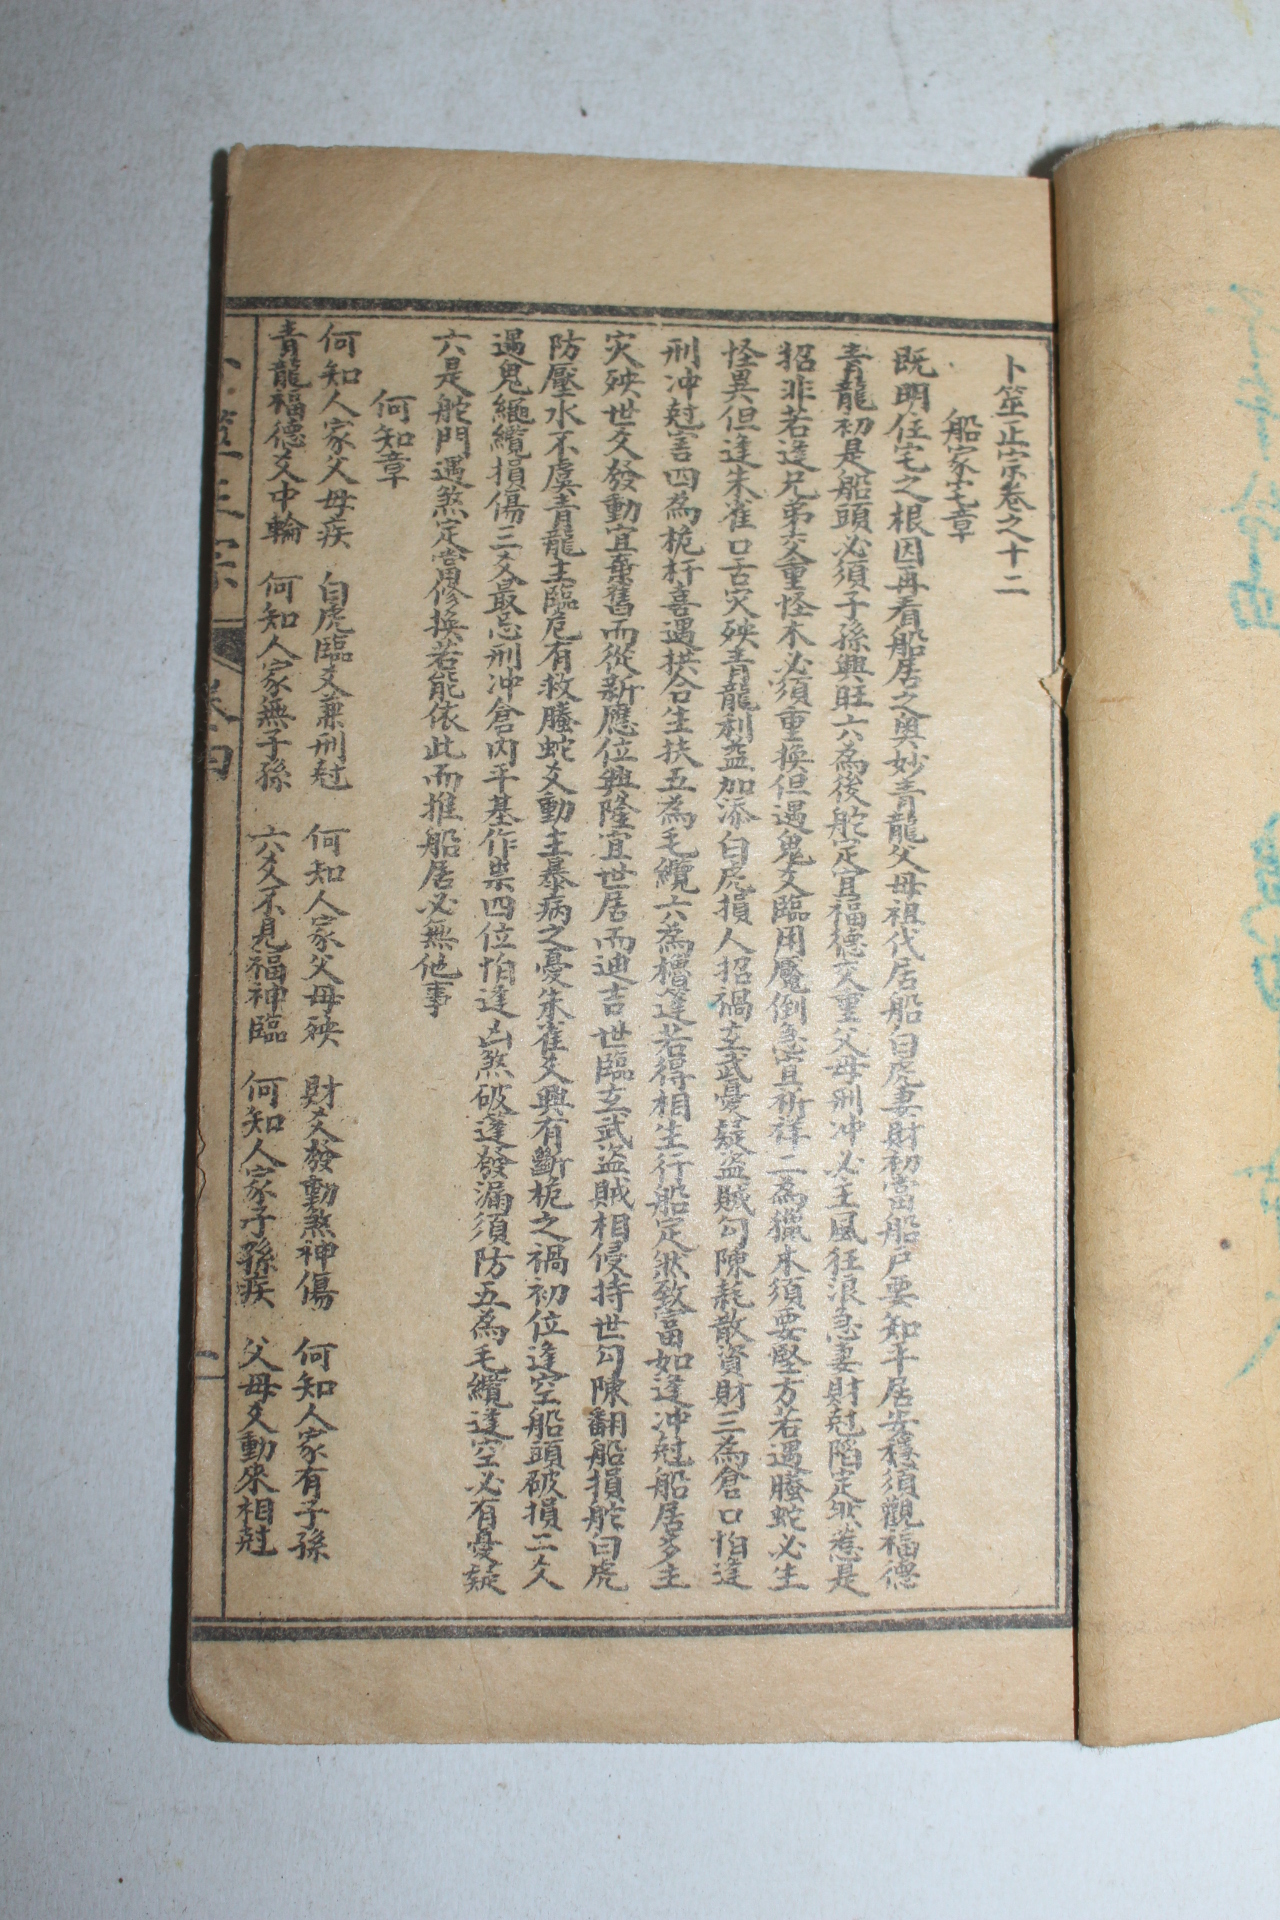 卜筮正宗卷之十二
船家宅章
既明住宅之根因再看船居之奧妙青龍父母祖代居船白虎妻財初當船戶要知平居安穩須觀福德
青龍初是船頭必須子孫興旺六為後舵定宜福德交重父母刑冲必主風狂浪急妻財尅陷定然惹是
招非若逢兄弟交重怪木必須重換但遇鬼爻臨用魘倒急宜祈祥二為獵木須要堅方若遇螣蛇必生
怪異但逢朱雀口舌灾殃青龍利益加添白虎損人招禍玄武憂疑盜賊勾陳耗散資財三為倉口怕逢
刑冲尅害四為桅杆喜遇拱合生扶五為毛纜六為櫓逢若得相生行船定然致富如逢冲尅船居多主
灾殃世爻發動宜棄舊而從新應位興隆宜世居而迪吉世臨玄武盜賊相侵持世勾陳翻船損舵白虎
防壓水不虞青龍主臨危有救螣蛇爻動主暴病之憂朱雀爻興有斷桅之禍初位逢空船頭破損二爻
遇鬼繩纜損傷三爻最忌刑冲倉內平基作祟四位怕逢凶煞破蓬發漏須防五為毛纜逢空必有憂疑
六是舵門遇煞定當修換若能依此而推船居必無他事
何知章
何知人家父母疾 白虎臨爻兼刑尅 何知人家父母殃 財爻發動煞神傷 何知人家有子孫
青龍福德爻中輪 何知人家無子孫 六爻不見福神臨 何知人家子孫疾 父母爻動來相尅